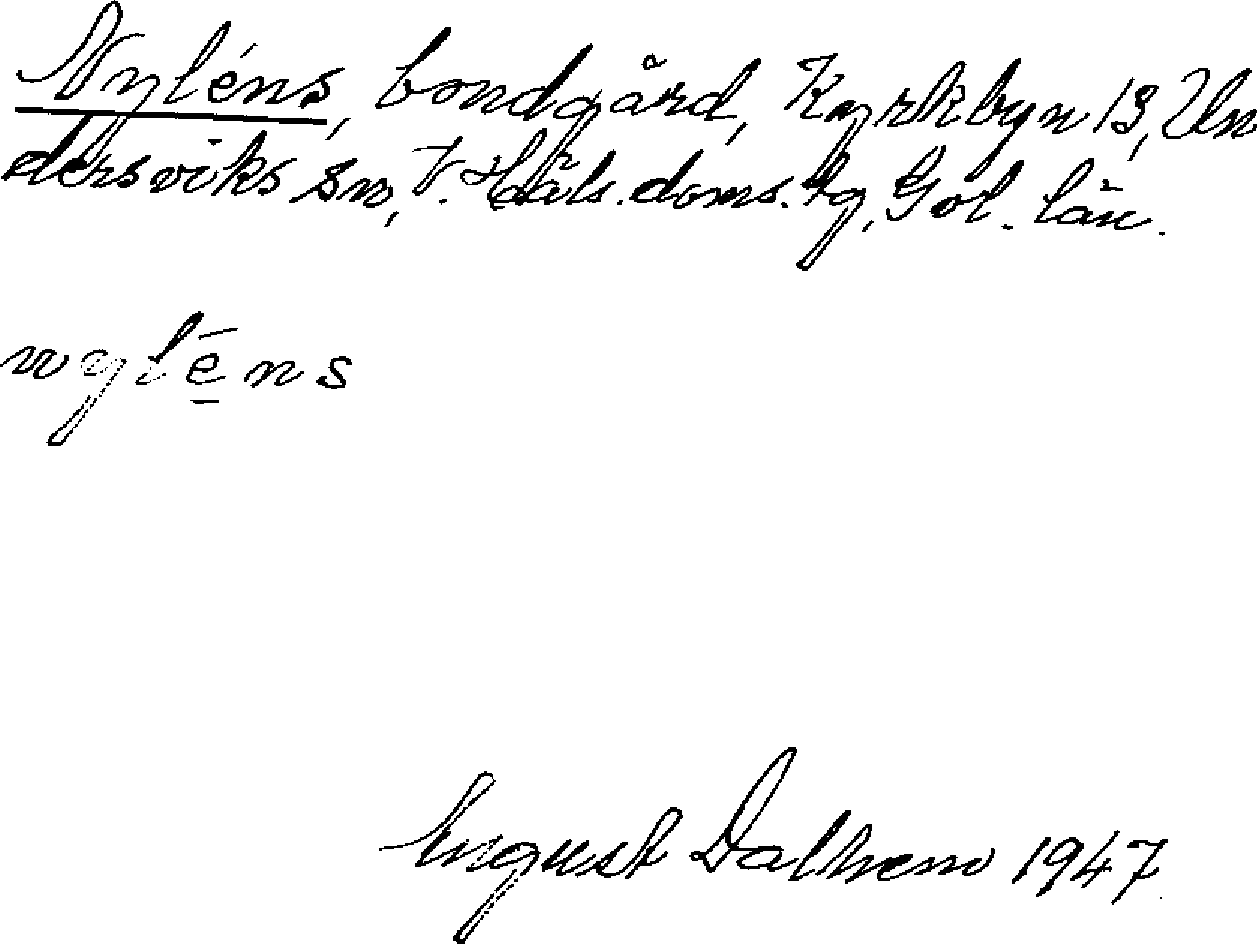 Nyléns, bondgård, Kyrkbyn 13, Un
dersviks sn, V. Häls. doms. tg, Gvl. län.
nyléns
August Dalhem 1947